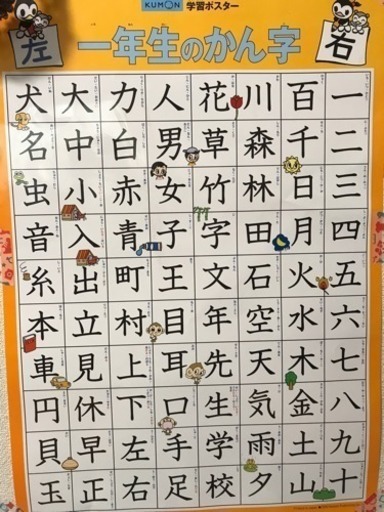 KUMON 学習ポスター
左 一年生のかん字 右
犬 大 力 人 花 川 百 一
名 中 白 男 草 森 千 二
虫 小 赤 女 竹 林 日 三
音 入 青 子 字 田 月 四
糸 出 町 王 文 石 火 五
本 立 村 目 年 空 水 六
車 見 上 耳 先 天 木 七
円 休 下 口 生 気 金 八
貝 早 左 手 学 雨 土 九
玉 正 右 足 校 夕 山 十